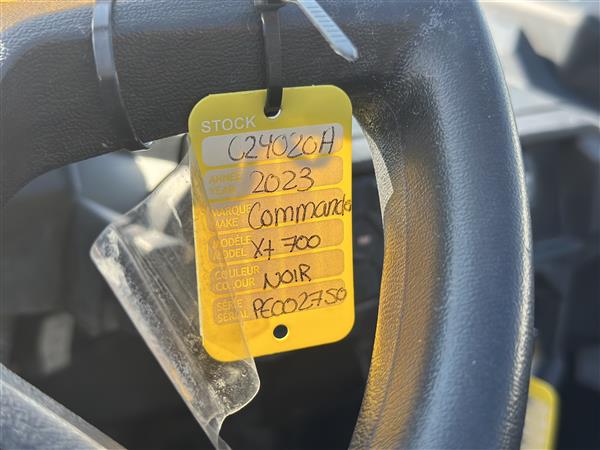 STOCK
C24020A
ANNÉE
YEAR 2023
MARQUE
MAKE Commander
MODÈLE
MODEL Xt 700
COULEUR
COLOUR NOIR
SÉRIE
SERIAL PE002750